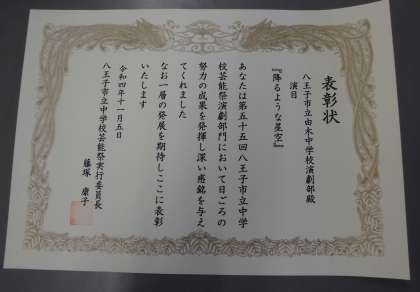 表彰状
八王子市立由木中学校演劇部殿
演目
『降るような星空』
あなたは第五十五回八王子市立中学
校芸能祭演劇部門において日ごろの
努力の成果を発揮し深い感銘を与え
てくれました
なお一層の発展を期待しここに表彰
いたします
令和四年十一月五日
八王子市立中学校芸能祭実行委員長
藤塚 康子